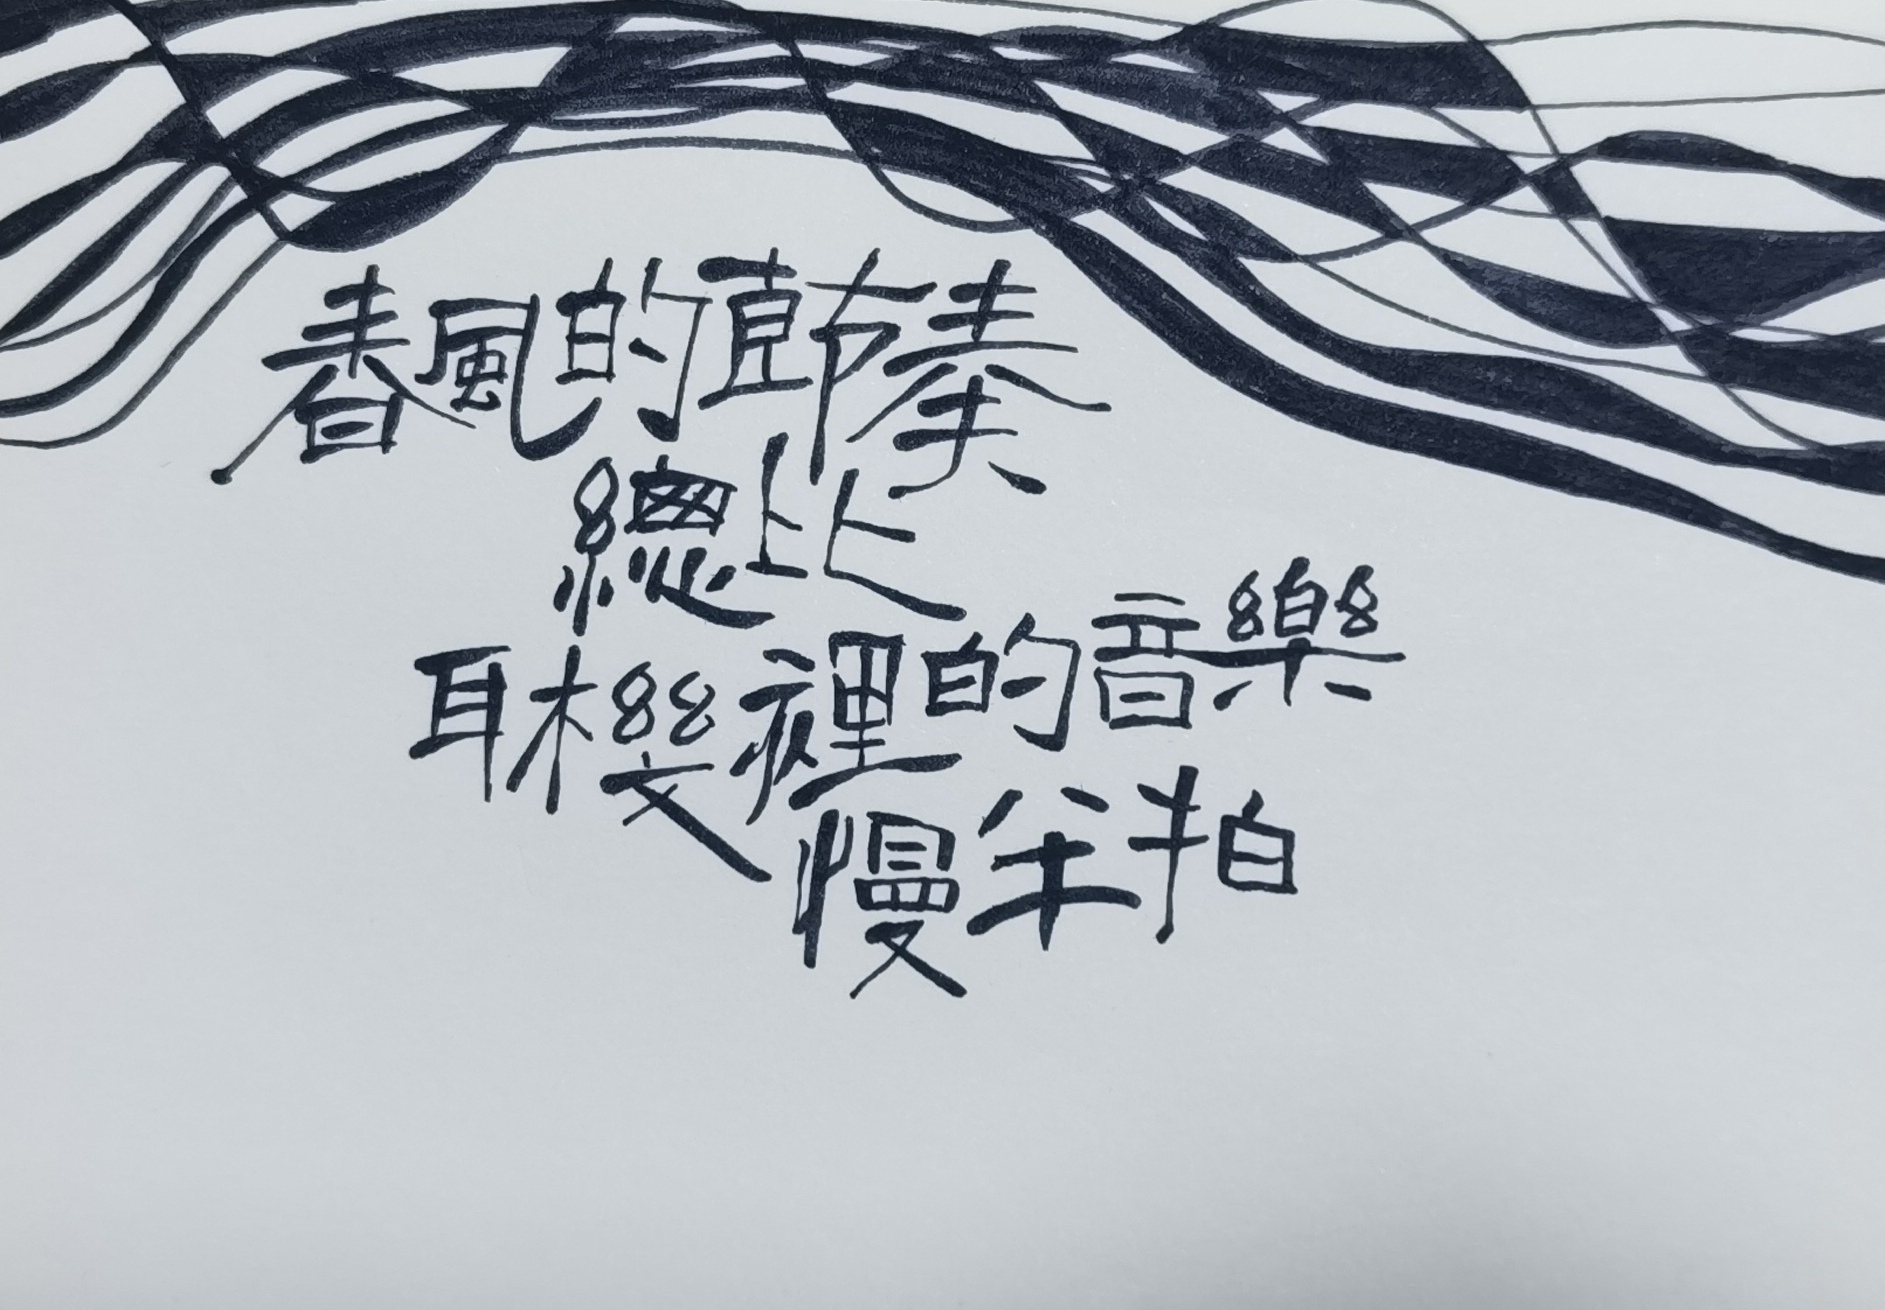 春風的節奏
總比
耳機裡的音樂
慢半拍